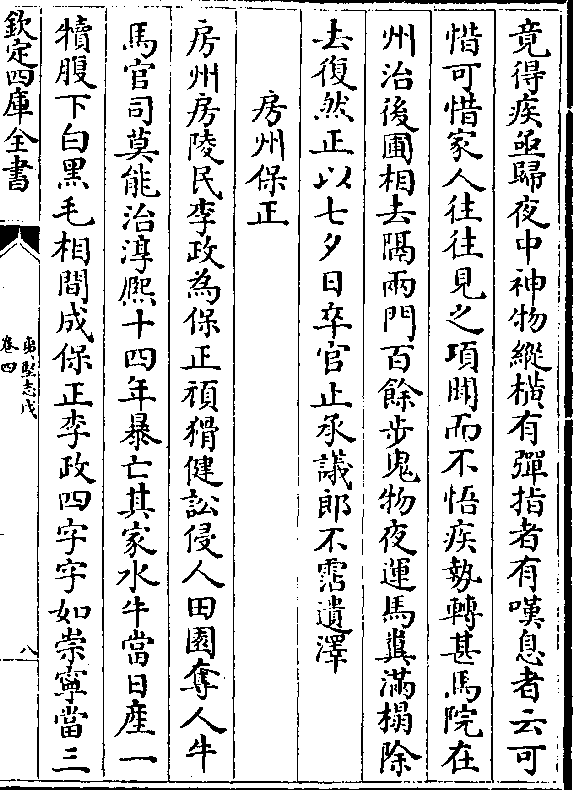 竟得疾亟歸夜中神物縱横有彈指者有嘆息者云可
惜可惜家人往往見之項明而不悟疾埶轉甚馬院在
州治後圃相去隔兩門百餘步鬼物夜運馬糞滿榻除
去復然正以七夕日卒官止承議郎不霑遺澤
房州保正
房州房陵民李政為保正頑猾健訟侵人田園奪人牛
馬官司莫能治淳熈十四年暴亡其家水牛當日産一
犢腹下白黑毛相間成保正李政四字字如崇寧當三
欽定四庫全書
夷堅志戊
卷四
八